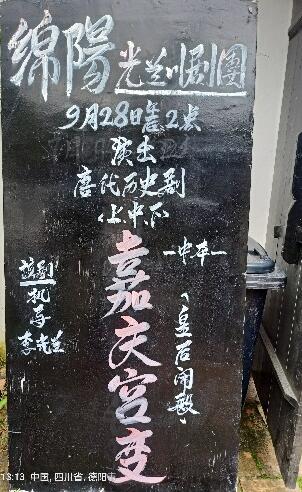 绵陽光兰川剧團
9月28日 2点
演出
唐代历史剧
(上中下
嘉庆宫变
一中本一
(皇后闹殿)
该剧
机导
李光兰
13:13 中国,四川省,德阳市